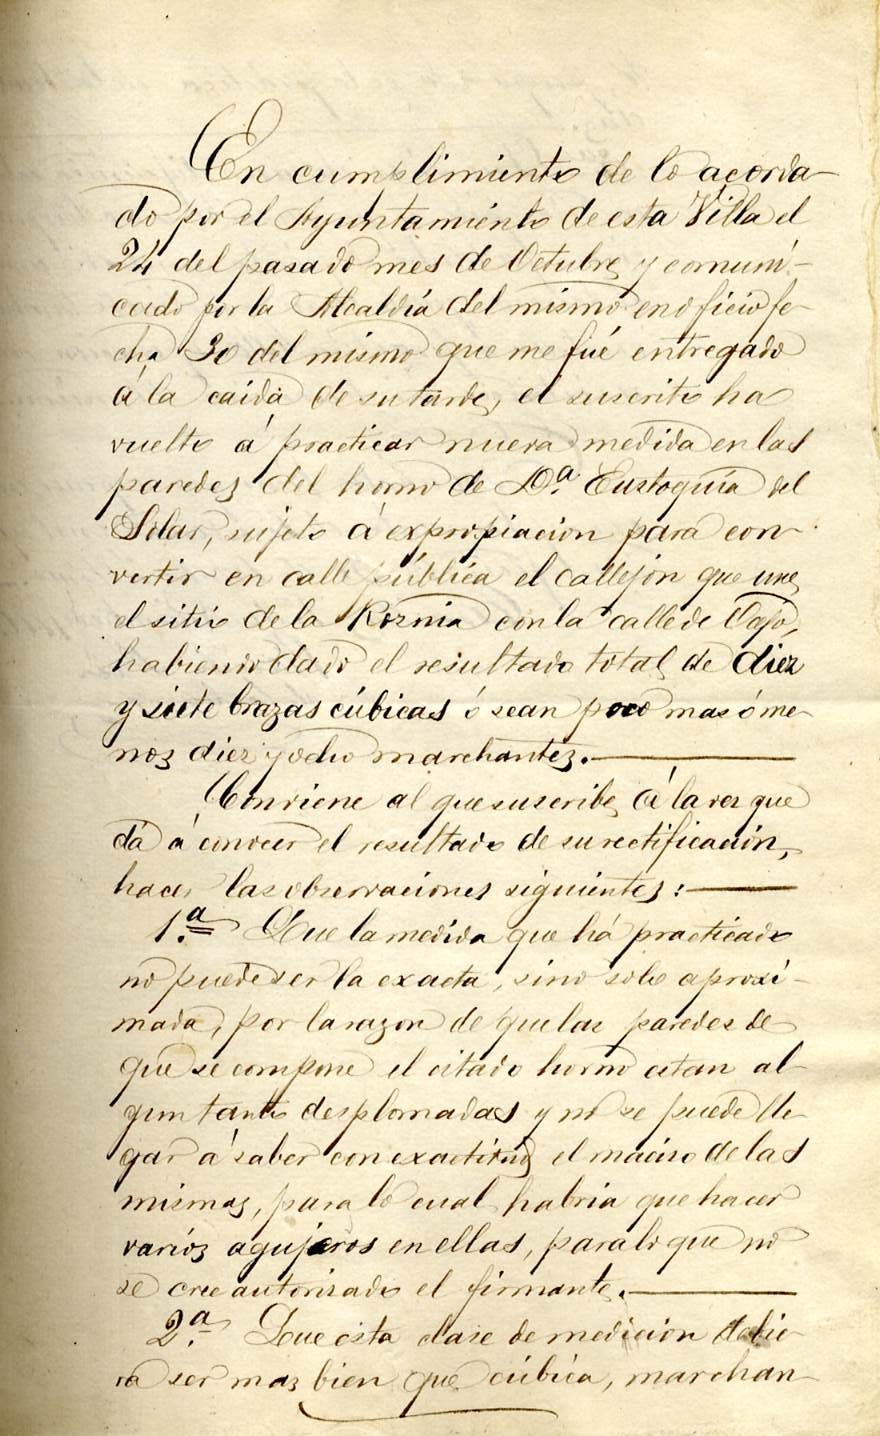 En cumplimiento de lo acorda-
do por el Ayuntamiento de esta Villa el
24 del pasado mes de Octubre, y comuni-
cado por la Alcaldía del mismo en oficio fe-
cha 30 del mismo que me fué entregado
á la caida de su tarde, el suscrito ha
vuelto á practicar nueva medida en las
paredes del horno de D.ª Eustoquia del
Solar, sujeto á expropiacion para con-
vertir en calle pública el callejón que une
el sitio de la Roznia con la calle de
habiendo dado el resultado total de diez
y siete brazas cúbicas ó sean poco mas ó me-
nos diez y ocho marchantes.
Conviene al que suscribe, á la vez que
dá á conocer el resultado de su rectificación,
hacer las observaciones siguientes:
1.ª Que la medida que há practicado
no puede ser la exacta, sino solo aproxi-
mada, por la razon de que las paredes de
que se compone el citado horno estan al-
gun tanto desplomadas y no se puede lle-
gar á saber con exactitud el macizo de las
mismas, para lo cual habria que hacer
varios agujeros en ellas, para lo que no
se cree autorizado el firmante.
2.ª Que esta clase de medicion debie-
ra ser mas bien que cúbica, marchan-